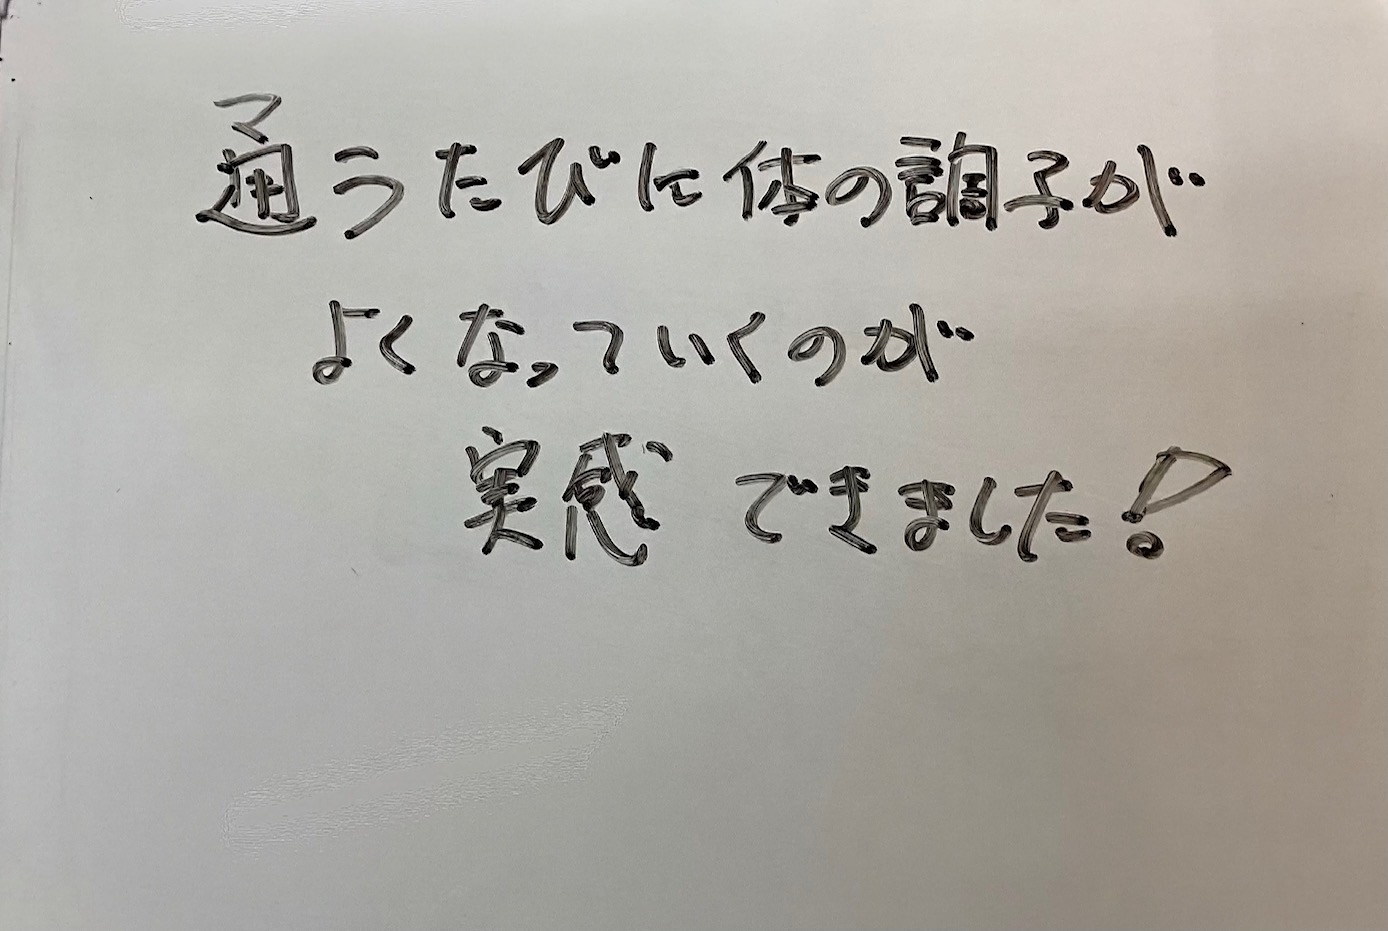 通うたびに体の調子が
よくなっていくのが
実感できました!